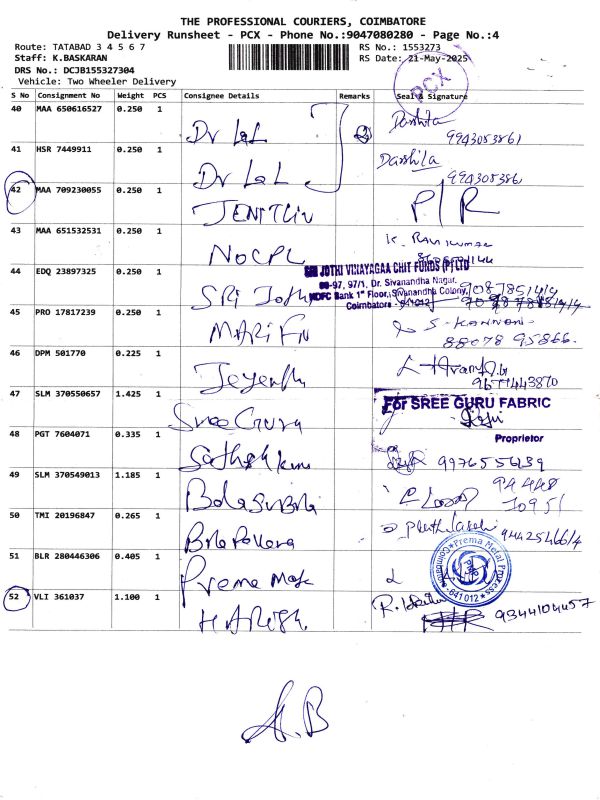 THE PROFESSIONAL COURIERS, COIMBATORE
Delivery Runsheet - PCX - Phone No.:9047080280 - Page No.:4
Route: TATABAD 3 4 5 6 7 RS No.: 1553273
Staff: K.BASKARAN RS Date: 21-May-2025
DRS No.: DCJB155327304
Vehicle: Two Wheeler Delivery
PCX
S No Consignment No Weight PCS Consignee Details Remarks Seal & Signature
40 MAA 650616527 0.250 1 Dr Lal Darshita
9943053861
41 HSR 7449911 0.250 1 Dr Lal Darshila
994305386
42 MAA 709230055 0.250 1 P/R
43 MAA 651532531 0.250 1 NOCPL K. Ravikumar
44 EDQ 23897325 0.250 1 SRI Jothi
SRI JOTHI VINAYAGAA CHIT FUNDS (P) LTD
96-97, 97/1, Dr. Sivanandha Nagar,
HDFC Bank 1st Floor, Sivanandha Colony,
Coimbatore - 641012
45 PRO 17817239 0.250 1 S. Kannan
88078 95866.
46 DPM 501770 0.225 1
9677443870
47 SLM 370550657 1.425 1 Sree Guru
For SREE GURU FABRIC
Proprietor
48 PGT 7604071 0.335 1 9976555639
49 SLM 370549013 1.185 1 Bala Subra 94448
70951
50 TMI 20196847 0.265 1
51 BLR 280446306 0.405 1 Prema
Prema Metal Process
Coimbatore
PMP
641 012
52 VLI 361037 1.100 1 HARISH 9344104457
A.B